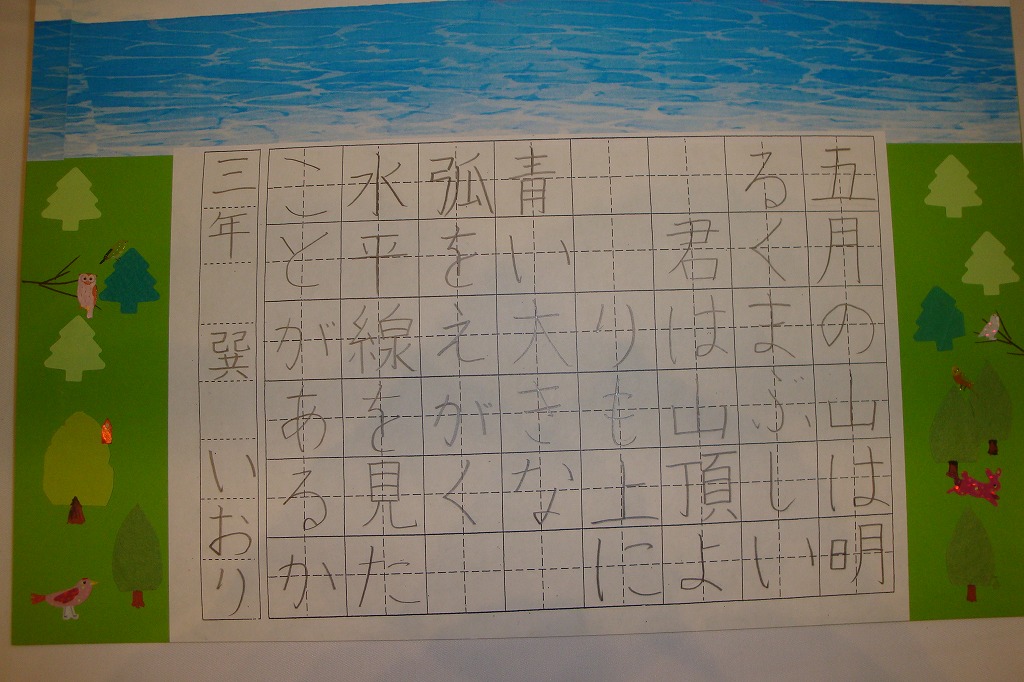 五月の山は明
るくまぶしい
君は山頂よ
りも上に
青い大きな
弧をえがく
水平線を見た
ことがあるか
三年 巽 いおり